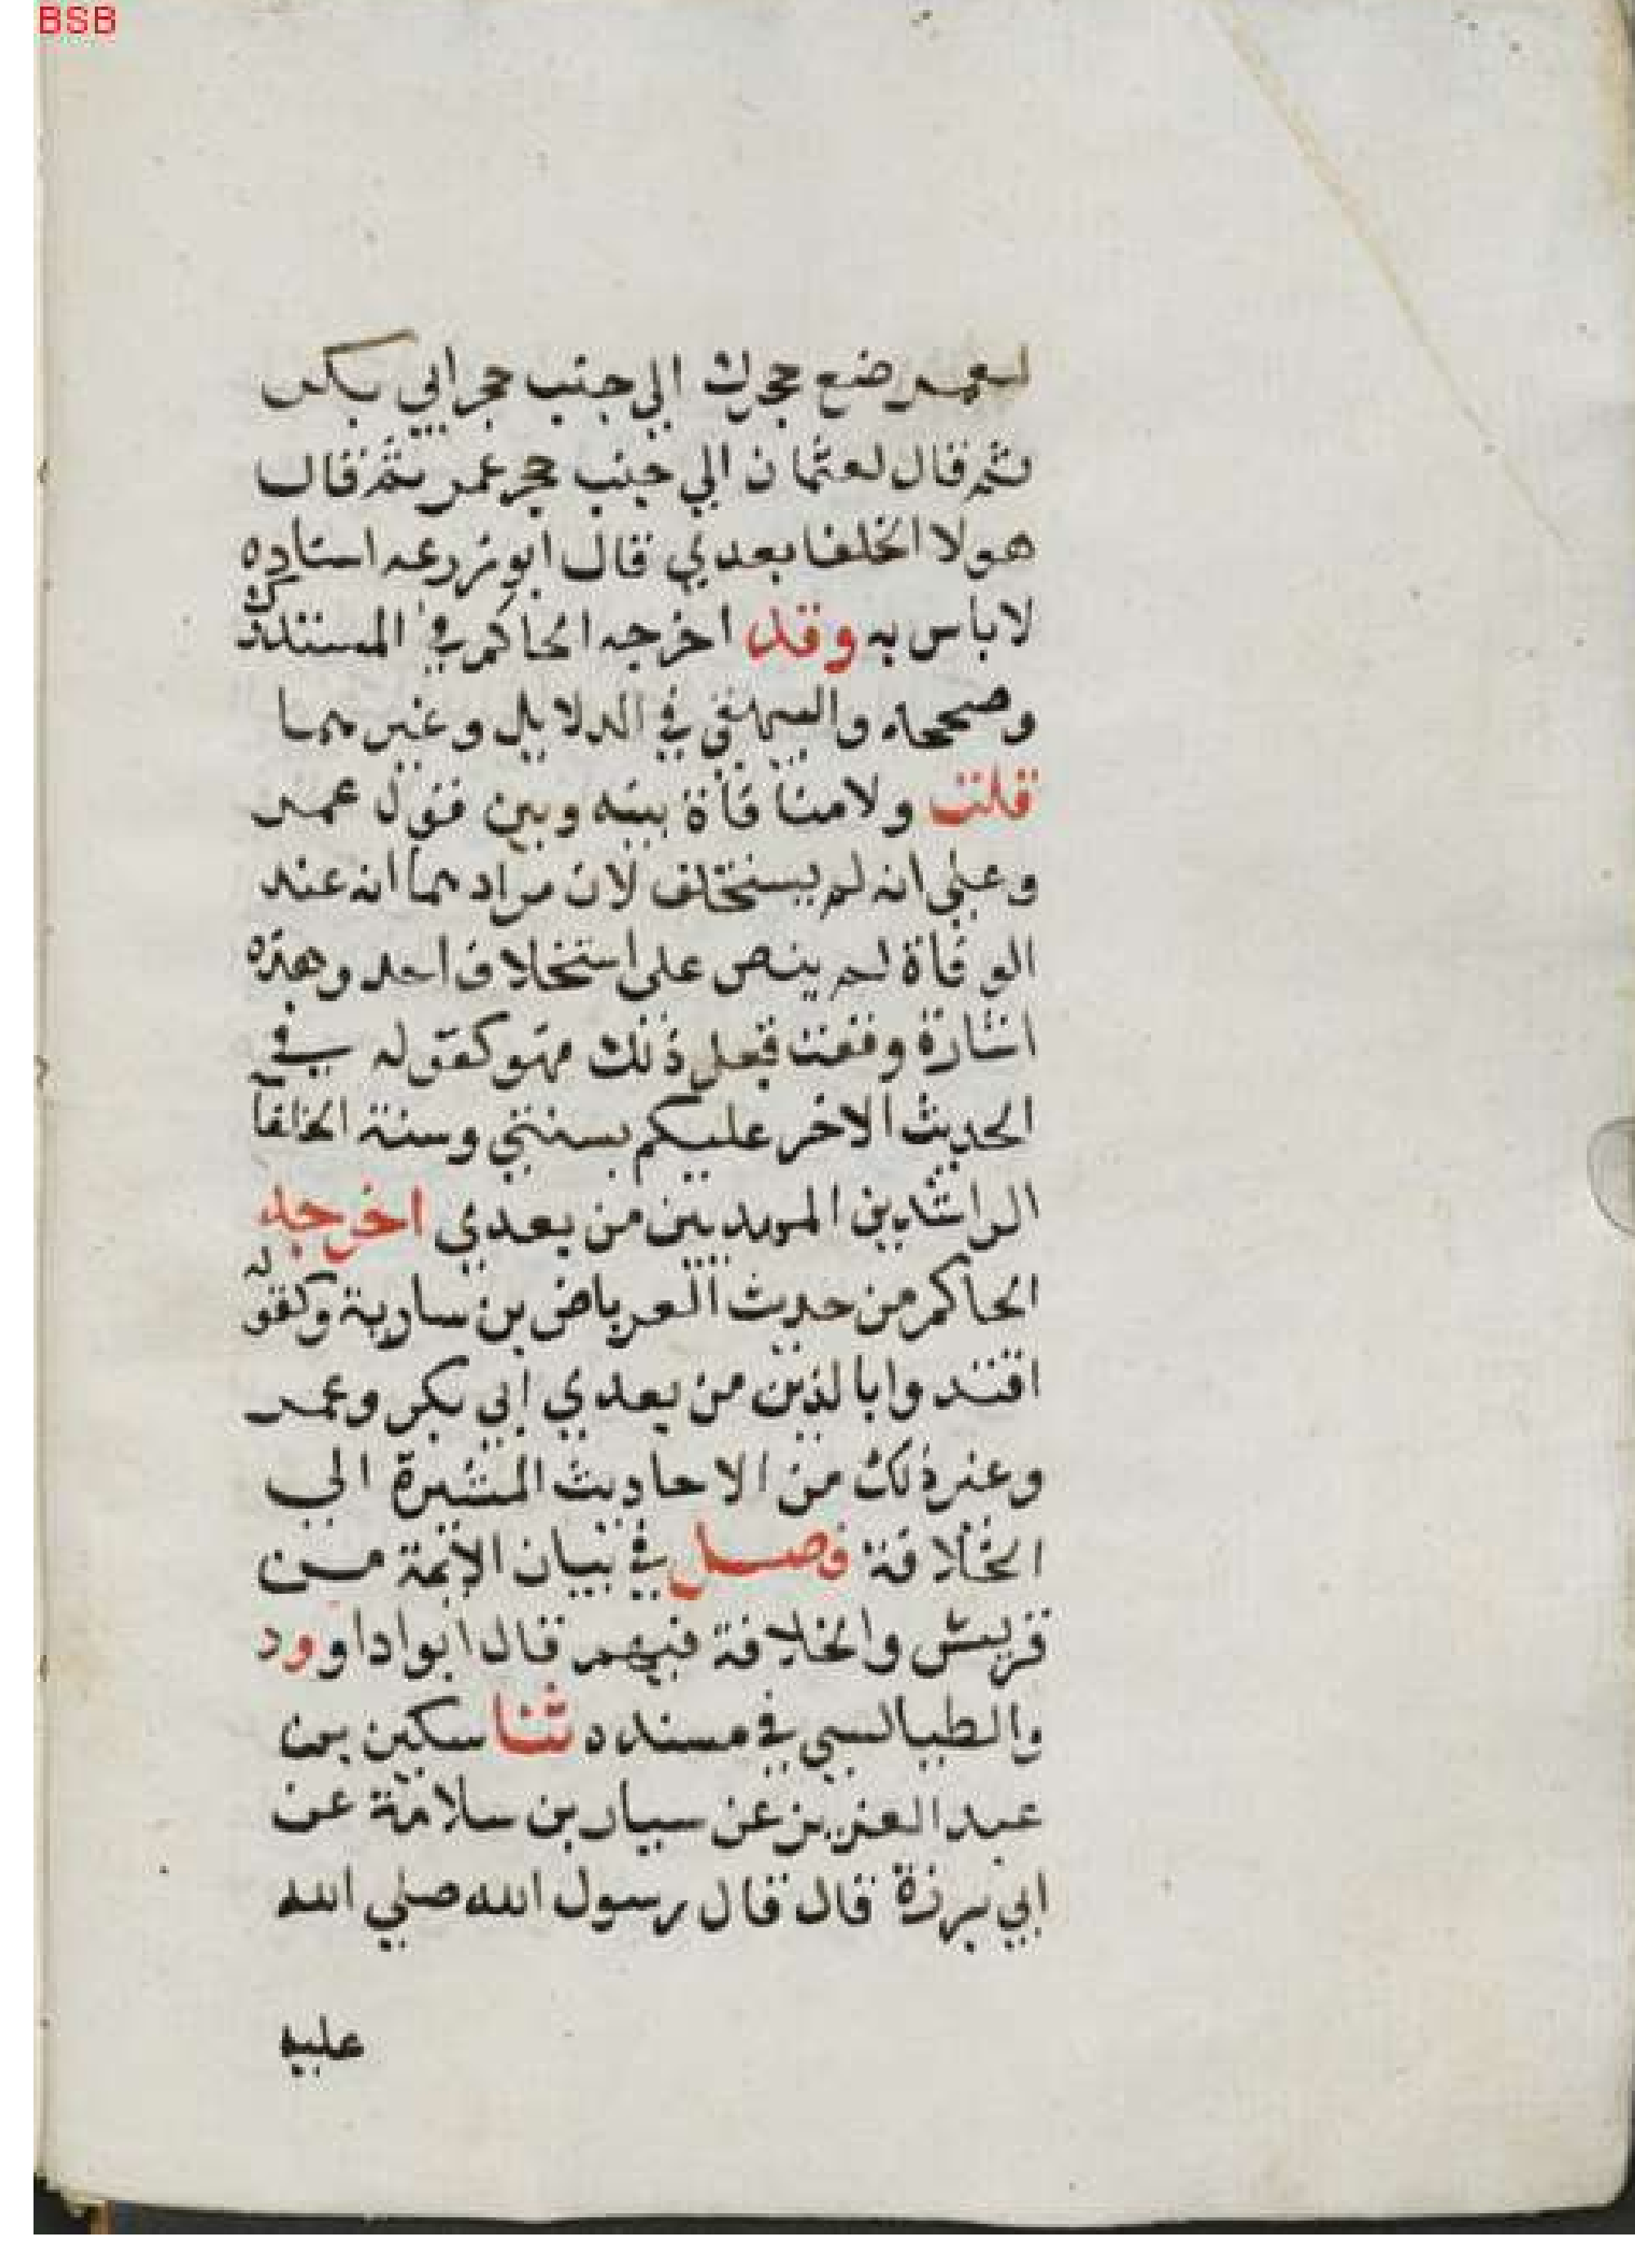 BSB
لعمر ضع حجرك الي جنب حجر ابي بكر
ثم قال لعثمان الي جنب حجر عمر ثم قال
هولا الخلفا بعدي قال ابو زرعه استاده
لا باس به وقد اخرجه الحاكم في المستدرك
وصححه والبيهقي في الدلايل وغيرهما
قلت ولا منافاة بينه وبين قول عمر
وعلي انه لم يستخلف لان مرادهما انه عند
الوفاة لم ينص على استخلاف احد وهذه
اشارة وقعت قبل ذلك فهو كقوله في
الحديث الاخر عليكم بسنتي وسنة الخلفآ
الراشدين المهديين من بعدي اخرجه
الحاكم من حديث العرباض بن سارية وكقوله
اقتدوا بالذين من بعدي ابي بكر وعمر
وغير ذلك من الاحاديث المشيرة الي
الخلافة فصل في بيان الايمة من
قريش والخلافة فيهم قال ابوا داوود
والطيالسي في مسنده ثنا سكين بن
عبد العزيز عن سيار بن سلامة عن
ابي برزة قال قال رسول الله صلي الله
عليه